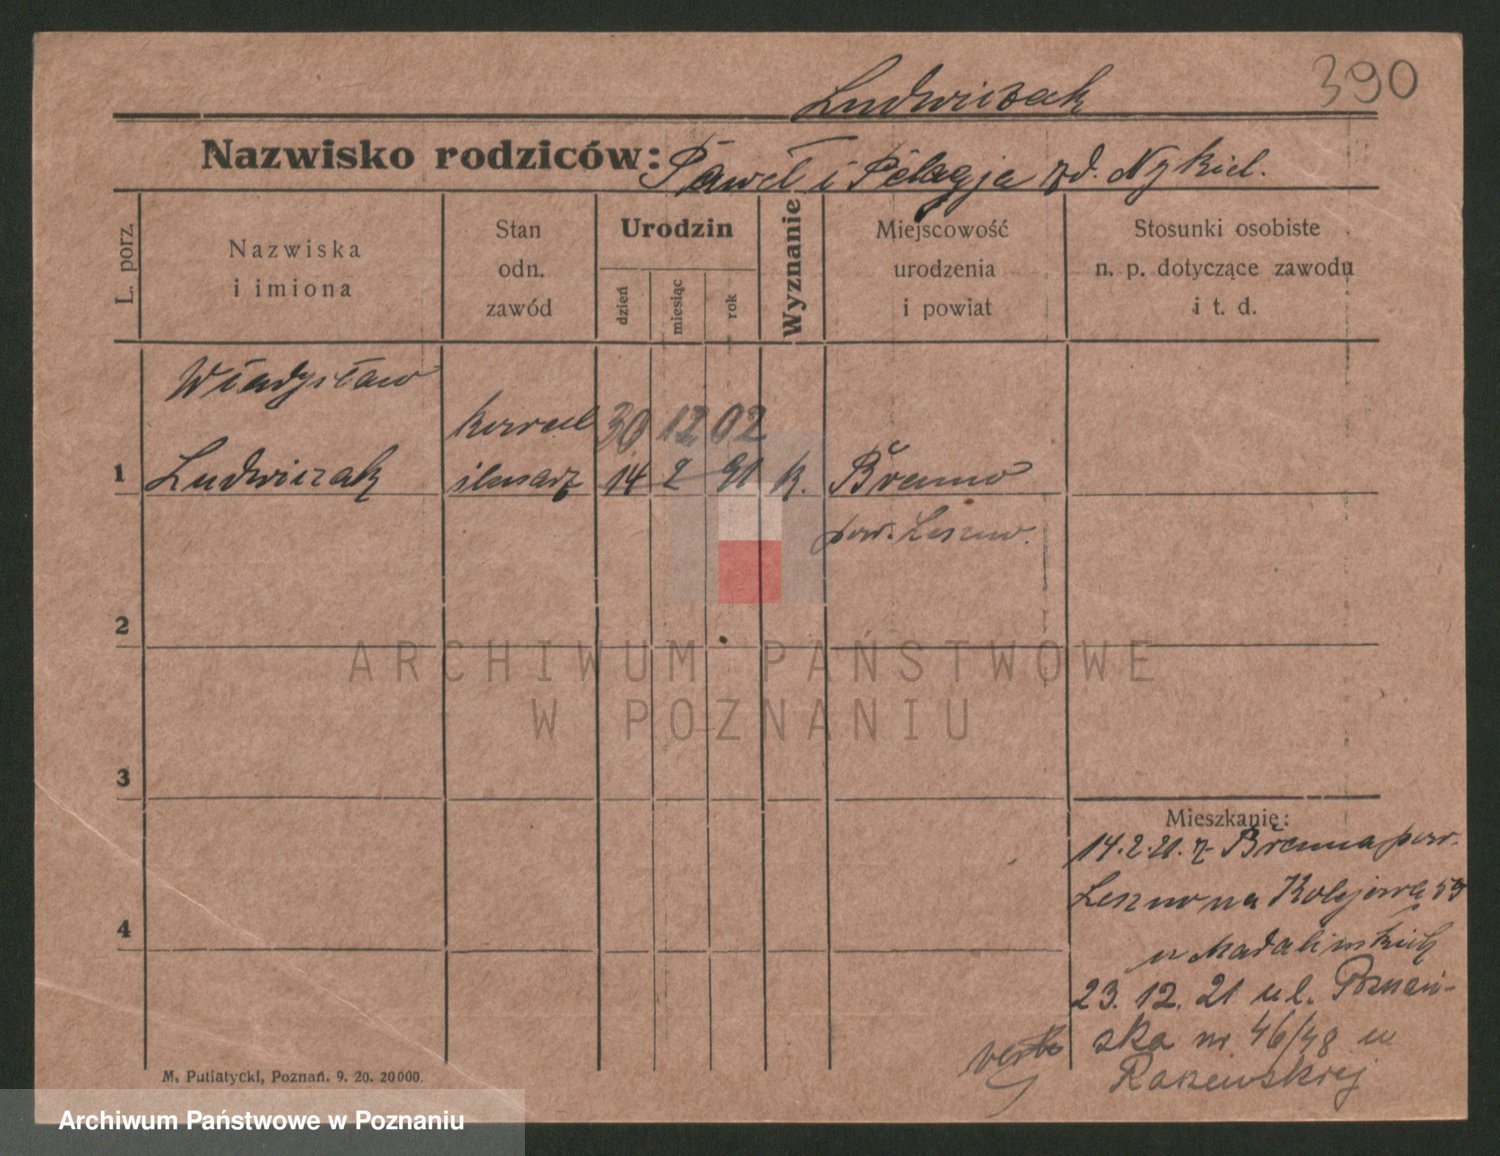 390
Ludwiczak
Nazwisko rodziców: Paweł i Pelagja zd. Nykiel.
L. porz.
Nazwiska
i imiona
Stan
odn.
zawód
Urodzin
dzień
miesiąc
rok
Wyznanie
Miejscowość
urodzenia
i powiat
Stosunki osobiste
n. p. dotyczące zawodu
i t. d.
Władysław
30 12 02
1 Ludwiczak ślusarz 14 2 k. Brenno
pow. Leszno.
2
3
4
Mieszkanie:
14.2.21. z Brenna pow.
Leszno na Kolejową 53
u Madalińskich
23. 12. 21 ul. Poznań-
ska nr 46/48 u
Raszewskiej
verte
M. Putiatycki, Poznań. 9. 20. 20000.
ARCHIWUM PAŃSTWOWE
W POZNANIU
Archiwum Państwowe w Poznaniu